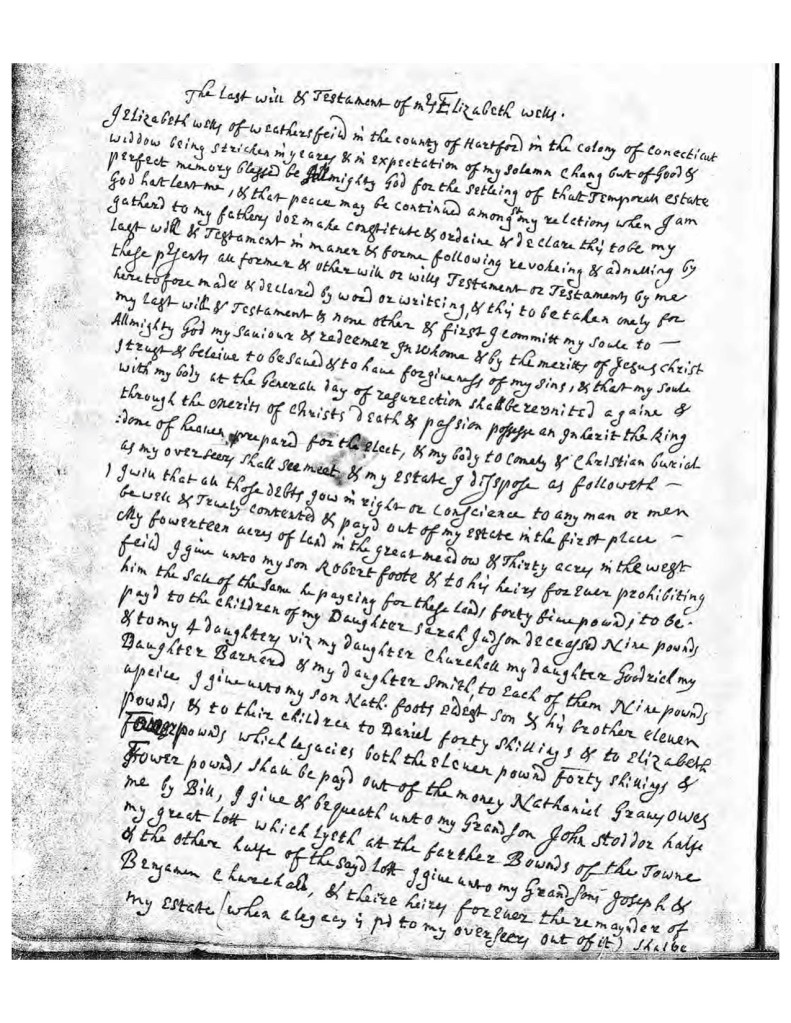 The Last will & Testament of mrs Elizabeth wells.
I Elizabeth wells of weathersfeild in the county of Hartford in the colony of Conecticut
widdow being stricken in yeares & in expectation of my solemn Chang but of Good &
perfect memory blessed be Allmighty God for the setleing of that Temporall estate
God hast lent me, & that peace may be continued amongst my relations when I am
gatherd to my fathers doe make constitute & ordaine & declare this to be my
Last will & Testament in maner & forme following revokeing & adnulling by
these presents all former & other will or wills Testament or Testaments by me
heretofore made & declared by word or writeing, & this to be taken onely for
my last will & Testament & none other & first I committ my soule to —
Allmighty God my saviour & redeemer In whome & by the meritts of Jesus christ
I trust & beleive to be saved & to have forgiveness of my sins, & that my soule
with my body at the Generall day of resurection shall be reunited againe &
through the merits of Christs death & passion possesse an Inherit the King
:dome of heaven prepared for the elect, & my body to comely & Christian buriall
as my overseers shall see meet & my estate I disspose as followeth —
) I will that all those debts I ow in right or conscience to any man or men
be well & Truely contented & payd out of my estate in the first place —
My fowerteen acres of land in the great meadow & Thirty acres in the west
feild I give unto my son Robert foote & to his heirs for Ever prohibiting
him the sale of the same he payeing for these lands forty five pownds to be.
payd to the children of my Daughter Sarah Judson deceassed Nine pownds
& to my 4 daughters viz my daughter Churchell my daughter Goodrich my
Daughter Barnard & my daughter Smith, to Each of them Nine pownds
apeice I give unto my son Nath. foots Eldest son & his brother eleven
pownds & to their children to Daniel forty shillings & to Elizabeth
pownds which legacies both the Eleven pownd forty shillings &
Fower pownds shall be payd out of the money Nathaniel Graves owes
me by Bill, I give & bequeath unto my Grandson John Stoddor halfe
my great lott which lyeth at the farther Bownds of the Towne
& the other halfe of the sayd lott I give unto my Grandsons Joseph &
Benjamin Churchall, & theire heires for ever the remaynder of
my Estate (when a legacy is pd to my overseers out of it) shalbe